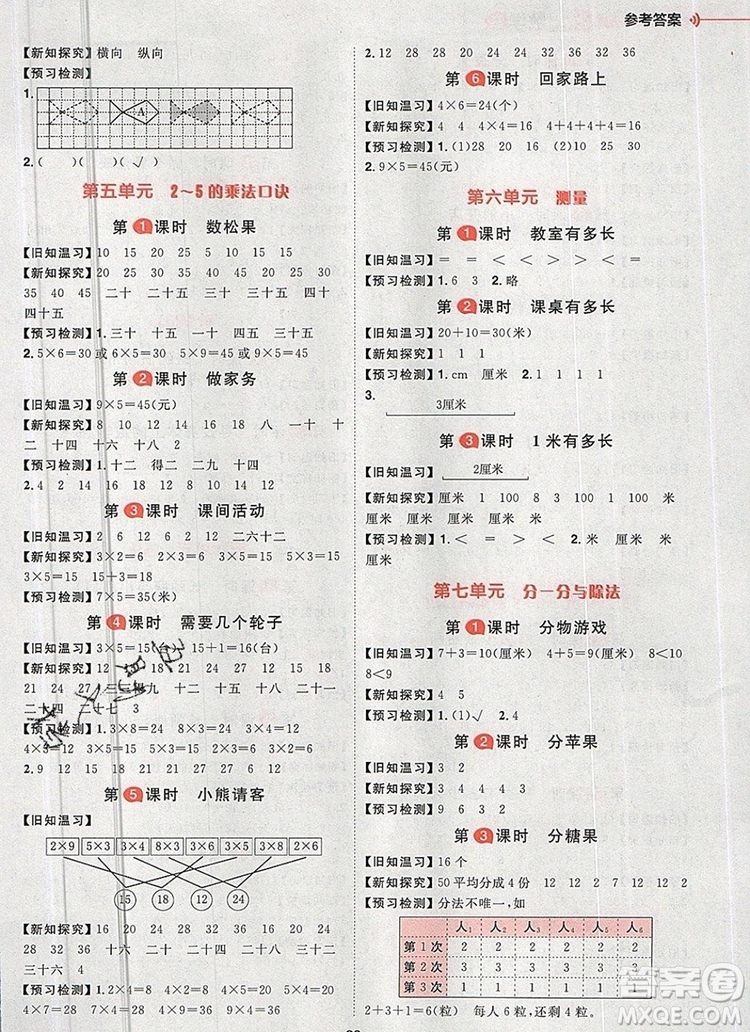 参考答案
【新知探究】横向 纵向
【预习检测】
1.
A
2.( ) ( ) (√)
第五单元 2～5的乘法口诀
第1课时 数松果
【旧知温习】10 15 20 5 10 15
【新知探究】20 25 30 35 40 45 20 25
30 35 40 45 二十 二十五 三十 三十五 四十
四十五
【预习检测】1.三十 十五 一十 三十五 四十
2.5×6=30或6×5=30 5×9=45或9×5=45
第2课时 做家务
【旧知温习】9×5=45(元)
【新知探究】8 10 12 14 16 18 八 一十
十二 十四 十六 十八 2
【预习检测】1.十二 得二 二九 十四
2.4 9 8 7 6 5
第3课时 课间活动
【旧知温习】2 6 12 6 12 二六十二
【新知探究】3×2=6 3×3=9 3×4=12
3×5=15
【预习检测】7×5=35(元)
第4课时 需要几个轮子
【旧知温习】3×5=15(台) 15+1=16(台)
【新知探究】12 15 18 21 24 27 12 15 18
21 24 27 十二 十五 十八 二十一
二十四 二十七 3
【预习检测】1.3×8=24 8×3=24
4×3=12 3×4=12 3×9=27 9×3=27
2.9 12 15 18 21 24 27
第5课时 小熊请客
【旧知温习】
2×9 5×3 3×4 8×3 3×6 3×5 3×8 2×6
15 18 12 24
【新知探究】16 20 24 28 32 36 16 20 24
28 32 36 十六 二十 二十四 二十八 三十二
三十六 4
【预习检测】1.4×4=16 4×5=20 4×6=24
4×7=28 7×4=28 4×8=32 4×9=36
2.12 28 16 24 32 20 36
第6课时 回家路上
【旧知温习】4×6=24(个)
【新知探究】4 4 4×4=16 4+4+4+4=16
【预习检测】1.(1)28 16 (2)28 32 16 36
2.9×5=45(元)
第六单元 测量
第1课时 教室有多长
【旧知温习】＝ ＝ ＜ ＞ ＜ ＝
【预习检测】1.6 3 2.略
第2课时 课桌有多长
【旧知温习】20+10=30(米)
【新知探究】1 1 1
【预习检测】1.cm 厘米 2.厘米 厘米
3.
3厘米
第3课时 1米有多长
【旧知温习】
2厘米
【新知探究】厘米 1 100 8 3 100 1 米
厘米 厘米 米 厘米 米
【预习检测】1.＜ ＝ ＞ 2.厘米 米 厘米
厘米 米
第七单元 分一分与除法
第1课时 分物游戏
【旧知温习】7+3=10(厘米) 4+5=9(厘米) 8＜10
8＜9
【新知探究】4 5
【预习检测】1.(1)√ 2.4
第2课时 分苹果
【旧知温习】3 2
【预习检测】9 6 3 2
第3课时 分糖果
【旧知温习】16个
【新知探究】50平均分成4份 12 12 12 12 2
【预习检测】分法不唯一,如
人1 人2 人3 人4 人5 人6
第1次 2 2 2 2 2 2
第2次 3 3 3 3 3 3
第3次 1 1 1 1 1 1
2+3+1=6(粒) 每人6粒,还剩4粒。
答案圈
MXQE.COM